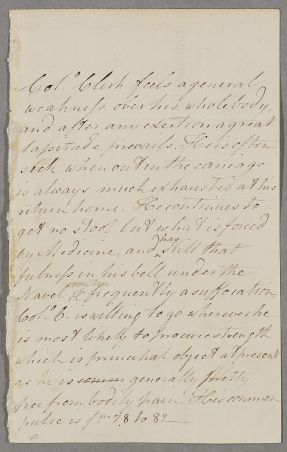 Col.º Clish feels a general
weakness over his whole body,
and after any exertion a great
lassitude prevails. He is often
sick when out in the carriage
is always much exhausted at his
return home. He continues to
get no stool but what is forced
by Medicine, and has still that
fulness in his bell under the
Navel, & frequently a suffocation
Col.º C. is willing to go wherever he
is most likely to procure strength
which is principal object at present
as he is generally pretty
free from bodily pain. His common
pulse is fm 78 to 82